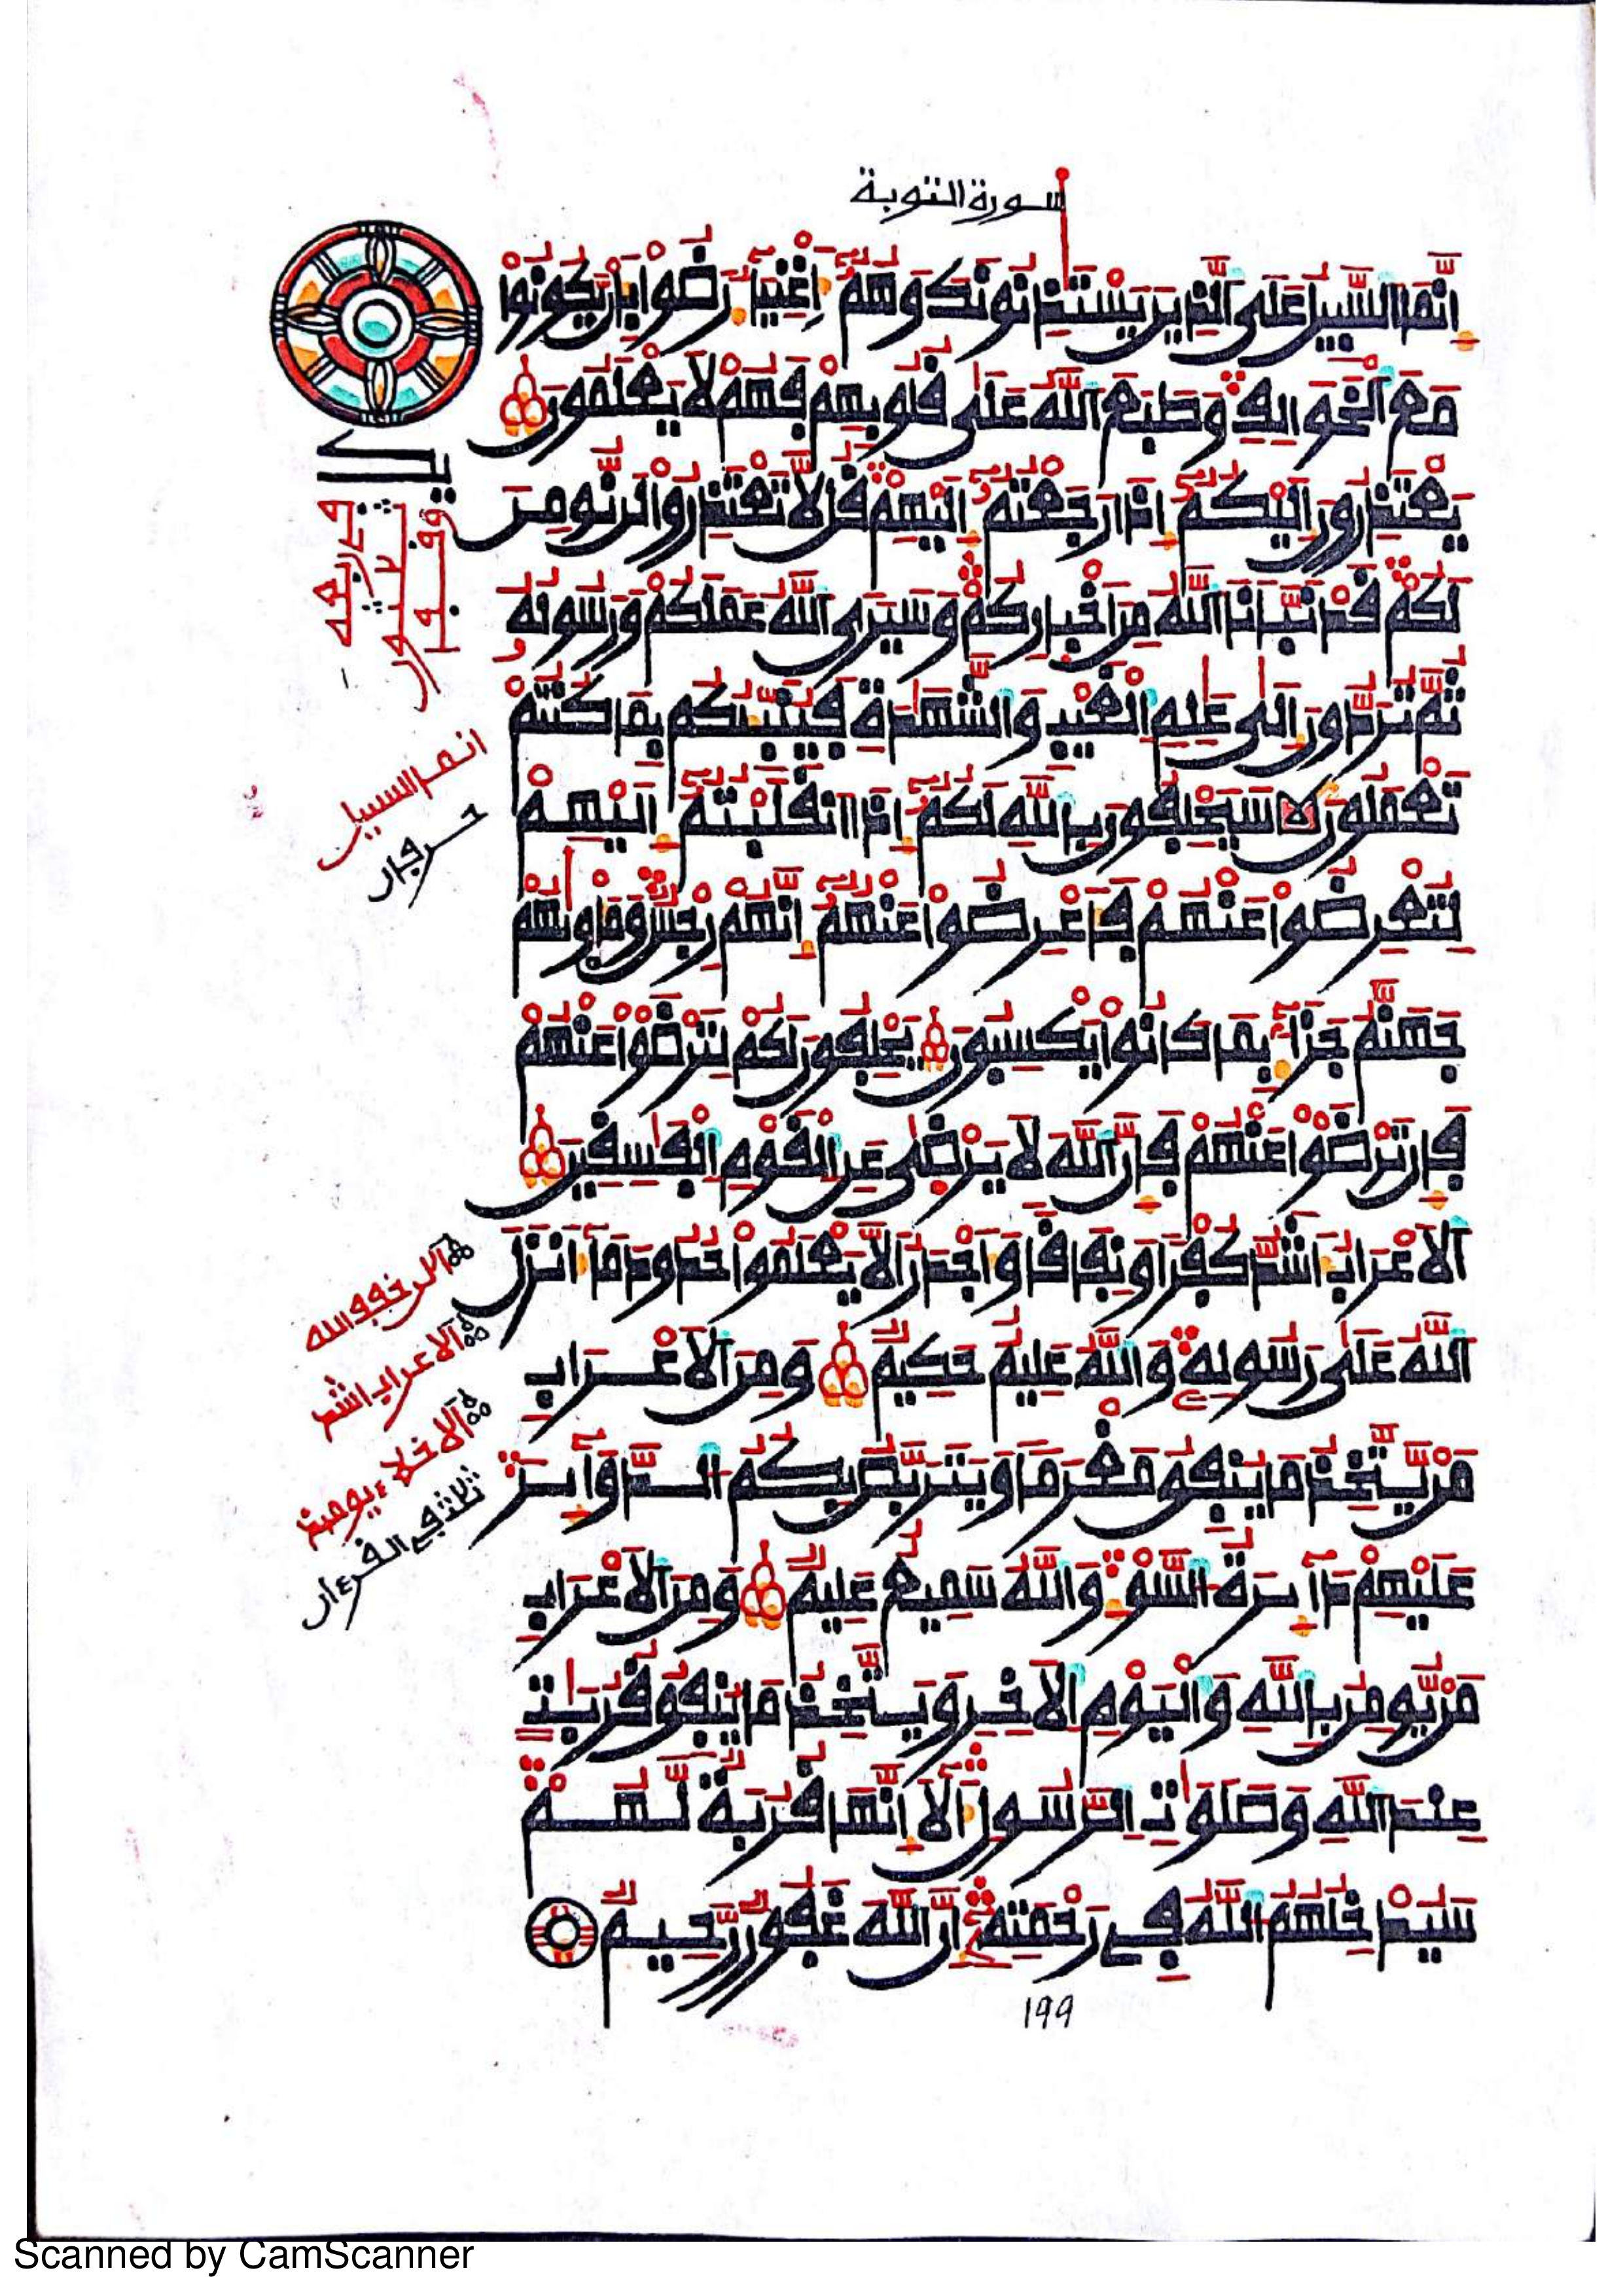 سورة التوبة
إِنَّمَا السَّبِيلُ عَلَى الَّذِينَ يَسْتَـْٔذِنُونَكَ وَهُمُۥٓ أَغْنِيَآءُ رَضُوا۟ بِأَنْ يَّكُونُوا۟
مَعَ الْخَوَالِفِ وَطَبَعَ اللَّهُ عَلَىٰ قُلُوبِهِمْ فَهُمْ لَا يَعْلَمُونَ
يَعْتَذِرُونَ إِلَيْكُمُۥٓ إِذَا رَجَعْتُمُۥٓ إِلَيْهِمْ قُل لَّا تَعْتَذِرُوا۟ لَن نُّومِنَ
لَكُمْ قَدْ نَبَّأَنَا اللَّهُ مِنْ أَخْبَارِكُمْ وَسَيَرَى اللَّهُ عَمَلَكُمْ وَرَسُولُهُۥ
ثُمَّ تُرَدُّونَ إِلَىٰ عَٰلِمِ الْغَيْبِ وَالشَّهَٰدَةِ فَيُنَبِّئُكُم بِمَا كُنتُمْ
تَعْمَلُونَ سَيَحْلِفُونَ بِاللَّهِ لَكُمُۥٓ إِذَا انقَلَبْتُمُۥٓ إِلَيْهِمْ
لِتُعْرِضُوا۟ عَنْهُمْ فَأَعْرِضُوا۟ عَنْهُمُۥٓ إِنَّهُمْ رِجْسٌ وَمَأْوَىٰهُمْ
جَهَنَّمُ جَزَآءً بِمَا كَانُوا۟ يَكْسِبُونَ يَحْلِفُونَ لَكُمْ لِتَرْضَوْا۟ عَنْهُمْ
فَإِن تَرْضَوْا۟ عَنْهُمْ فَإِنَّ اللَّهَ لَا يَرْضَىٰ عَنِ الْقَوْمِ الْفَٰسِقِينَ
الْأَعْرَابُ أَشَدُّ كُفْرًا وَنِفَاقًا وَأَجْدَرُ أَلَّا يَعْلَمُوا۟ حُدُودَ مَآ أَنزَلَ
اللَّهُ عَلَىٰ رَسُولِهِۦ وَاللَّهُ عَلِيمٌ حَكِيمٌ وَمِنَ الْأَعْرَابِ
مَنْ يَّتَّخِذُ مَا يُنفِقُ مَغْرَمًا وَيَتَرَبَّصُ بِكُمُ الدَّوَآئِرَ
عَلَيْهِمْ دَآئِرَةُ السَّوْءِ وَاللَّهُ سَمِيعٌ عَلِيمٌ وَمِنَ الْأَعْرَابِ
مَنْ يُّومِنُ بِاللَّهِ وَالْيَوْمِ الْأَخِرِ وَيَتَّخِذُ مَا يُنفِقُ قُرُبَٰتٍ
عِندَ اللَّهِ وَصَلَوَٰتِ الرَّسُولِ أَلَآ إِنَّهَا قُرُبَةٌ لَّهُمْ
سَيُدْخِلُهُمُ اللَّهُ فِى رَحْمَتِهِۦٓ إِنَّ اللَّهَ غَفُورٌ رَّحِيمٌ
انما السبيل
الاعراب اشد
الاخلاء يومئذ
ثلاث في القرءان
199
Scanned by CamScanner